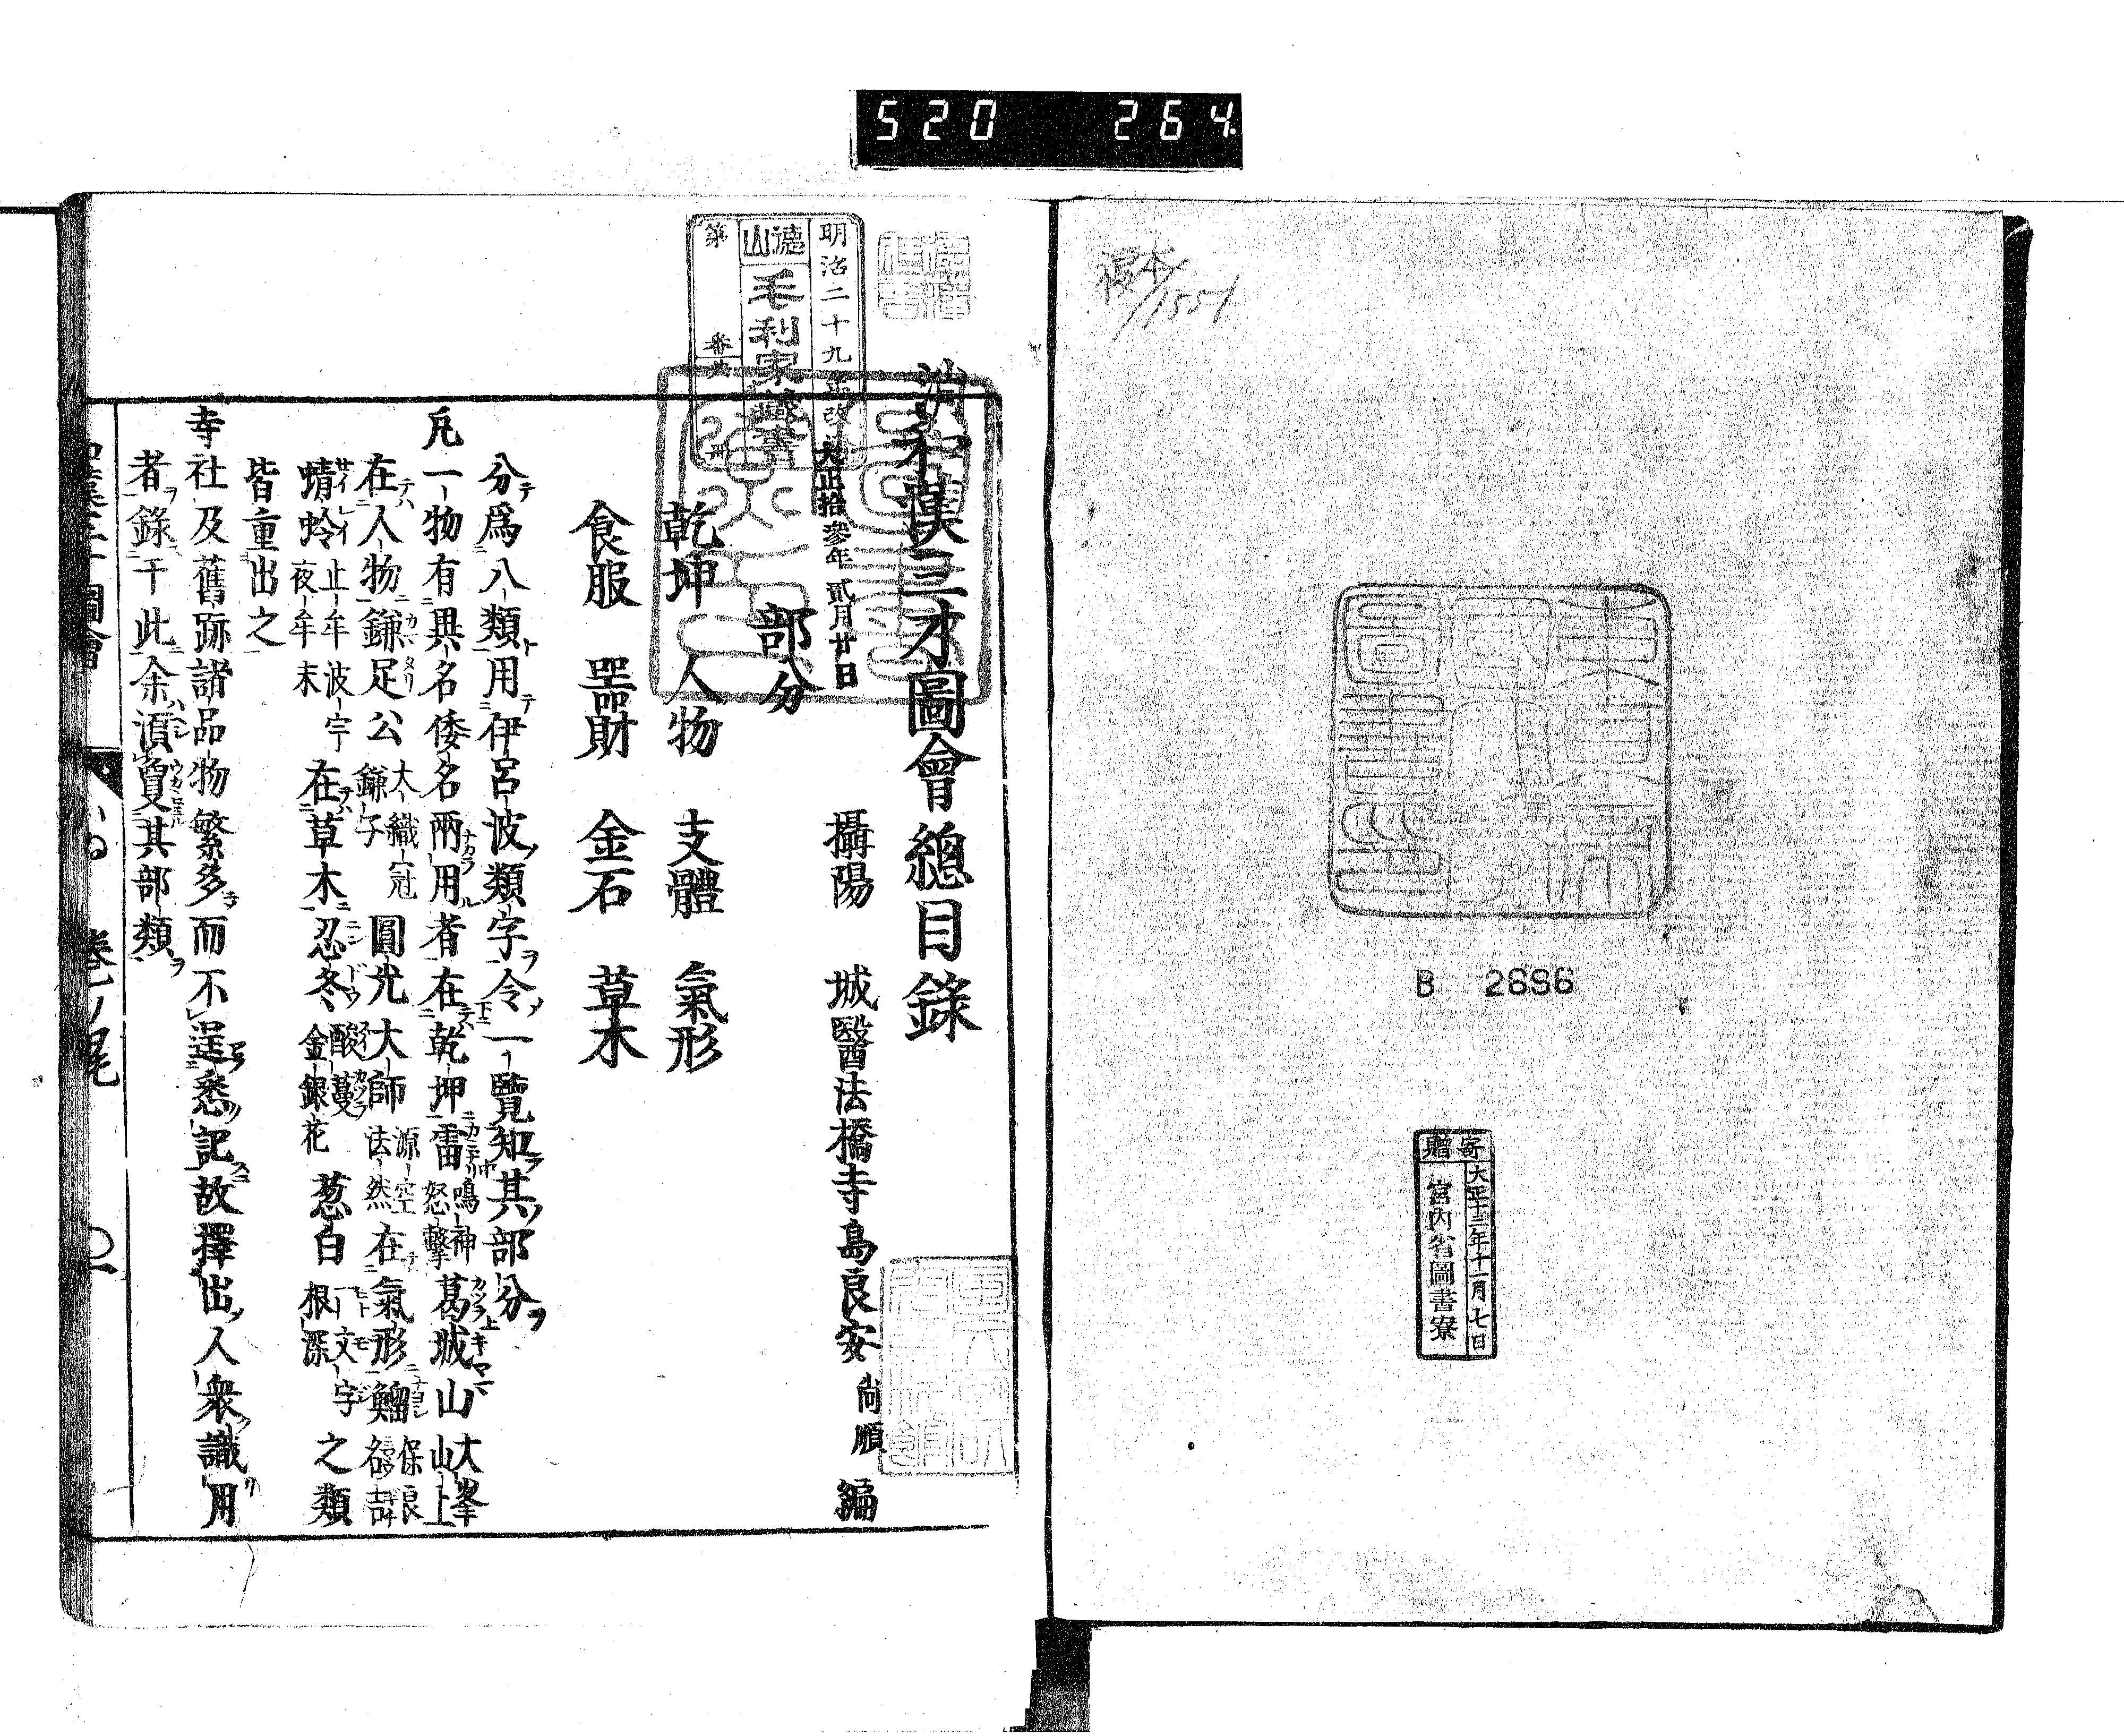 520 264
複本
1551
東京帝
國大學
圖書印
B 2696
寄贈
大正十三年十一月七日
宮内省圖書寮
明治二十九年改
德山
毛利家藏書
第 番共 冊
大正拾參年貳月廿日
和漢三才圖會總目錄
攝陽 城醫法橋寺島良安尚順編
部分
乾坤 人物 支體 氣形
食服 器財 金石 草木
分テ爲八類ト用テ伊呂波ノ類字ヲ令一覽知其ノ部分ヲ
凡一物有異名倭名兩用ナカラル者在テハ乾坤ニ雷カミナリ鳴神怒擊葛城山カツラキヤマ大峯山上
在テハ人物ニ鎌足公カマタリ大織冠鎌子圓光大師源空法然在氣形ニ鰡保良名吉
蜻蛉セイレイ止牟波宇夜牟末在草木ニ忍冬ニンドウ酸蔓カヅラ金銀花葱白一文字ヒトモジ根深之類
皆重出之
寺社及舊跡諸品物繁多而不遑悉記故擇出人衆識用
者ヲ錄于此余須叟其部類ヲ
卷一ノ尾